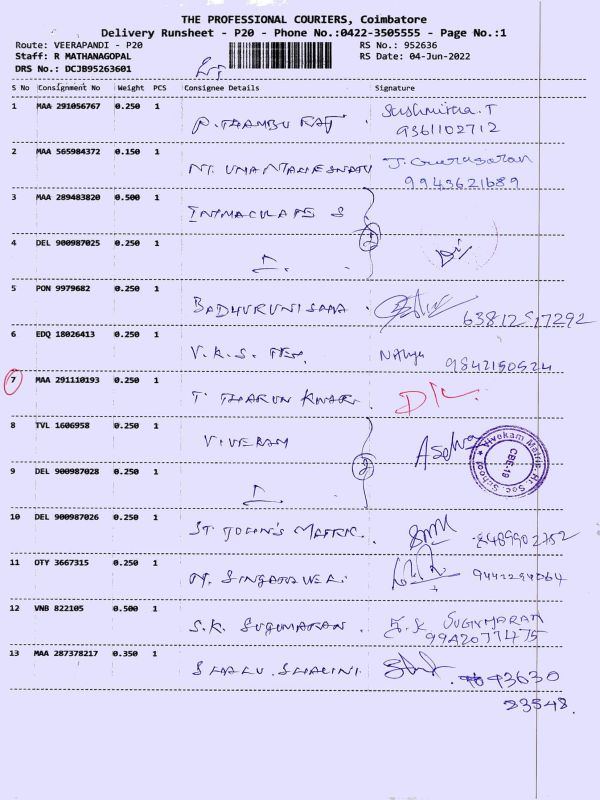 THE PROFESSIONAL COURIERS, Coimbatore
Delivery Runsheet - P20 - Phone No.:0422-3505555 - Page No.:1
Route: VEERAPANDI - P20 RS No.: 952636
Staff: R MATHANAGOPAL RS Date: 04-Jun-2022
DRS No.: DCJB95263601
S No Consignment No Weight PCS Consignee Details Signature
1 MAA 291056767 0.250 1 P. THAMBU RAJ Sushmitha.T
9361102712
2 MAA 565984372 0.150 1 J.
9943621689
3 MAA 289483820 0.500 1 IMMACULATE S
4 DEL 900987025 0.250 1
5 PON 9979682 0.250 1 BADHURUNISHA
6 EDQ 18026413 0.250 1 V.K.S. Nithya
9842150524
7 MAA 291110193 0.250 1 T. THARUN KUMAR. D/L
8 TVL 1606958 0.250 1 VIVEKAM ASelva
Vivekam Matric. Hr. Sec. School
CBE-19
9 DEL 900987028 0.250 1
10 DEL 900987026 0.250 1 ST JOHN'S MATRIC. 8489902752
11 OTY 3667315 0.250 1 M. SINGARAVEL
12 VNB 822105 0.500 1 S.K. SUGUMARAN S.K SUGUMARAN
9942077475
13 MAA 287378217 0.350 1 SHALU. SHALINI 93630
23548.